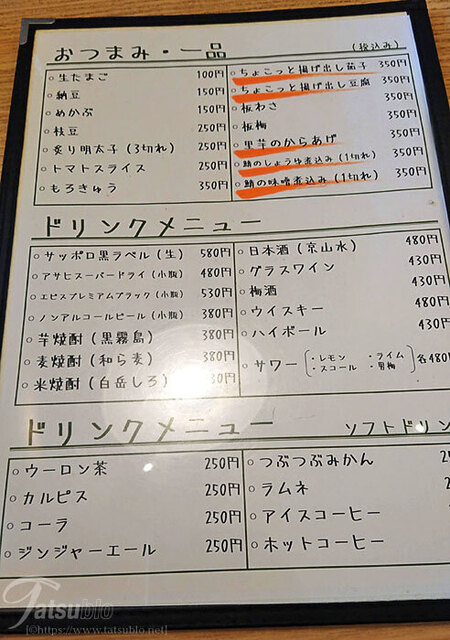 おつまみ・一品 (税込み)
○生たまご 100円
○納豆 150円
○めかぶ 150円
○枝豆 250円
○炙り明太子(3切れ) 250円
○トマトスライス 250円
○もろきゅう 350円
○ちょこっと揚げ出し茄子 350円
○ちょこっと揚げ出し豆腐 350円
○板わさ 350円
○板梅 350円
○里芋のからあげ 350円
○鯖のしょうゆ煮込み(1切れ) 350円
○鯖の味噌煮込み(1切れ) 350円
ドリンクメニュー
○サッポロ黒ラベル(生) 580円
○アサヒスーパードライ(小瓶) 480円
○エビスプレミアムブラック(小瓶) 530円
○ノンアルコールビール(小瓶) 380円
○芋焼酎(黒霧島) 380円
○麦焼酎(和ら麦) 380円
○米焼酎(白岳しろ) 30円
○日本酒(京山水) 480円
○グラスワイン 430円
○梅酒 430円
○ウイスキー 380円
○ハイボール 430円
○サワー ・レモン ・ライム ・スコール ・男梅 各480円
ドリンクメニュー ソフトドリン
○ウーロン茶 250円
○カルピス 250円
○コーラ 250円
○ジンジャーエール 250円
○つぶつぶみかん
○ラムネ
○アイスコーヒー
○ホットコーヒー
Tatsublo
[©https://www.tatsublo.net]